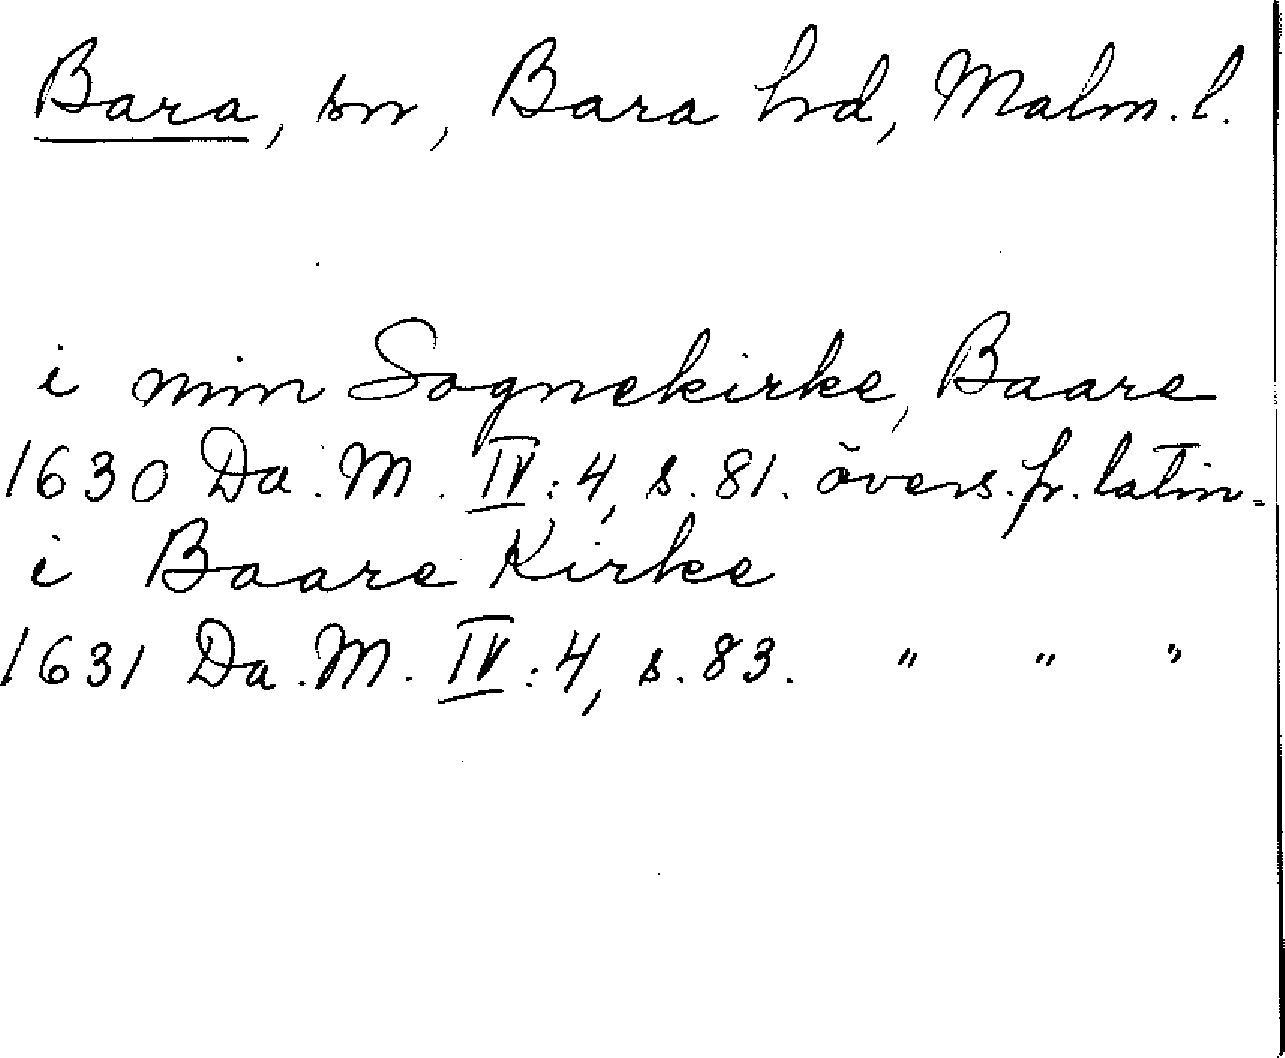 Bara, sn, Bara hd, Malm. l.
i min Sognekirke, Baare
1630 Da. M. IV:4, s. 81. övers. fr. latin.
i Baare Kirke
1631 Da. M. IV:4, s. 83. " " "